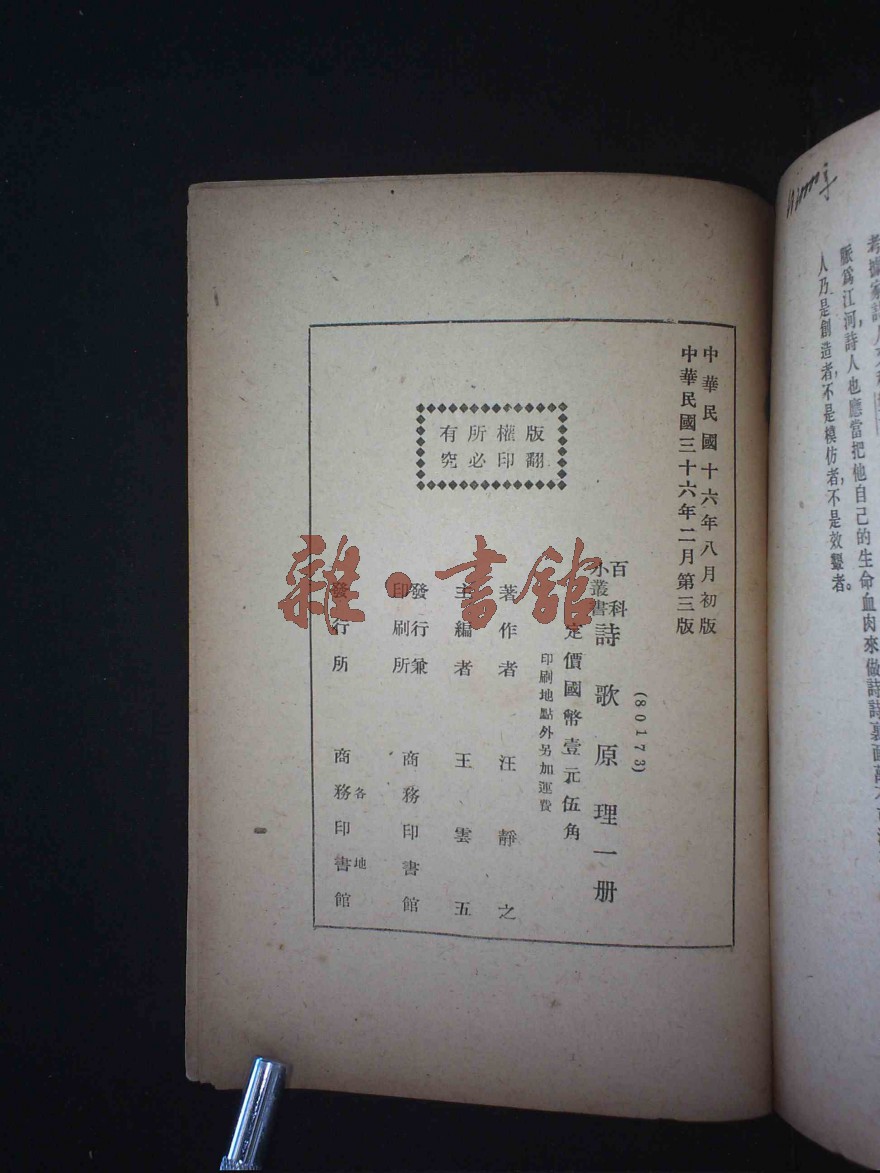 考據家詩人
脈爲江河，詩人也應當把他自己的生命血肉來做詩，詩裏面萬不
人乃是創造者，不是模仿者，不是效顰者。
中華民國十六年八月初版
中華民國三十六年二月第三版
(80173)
百科小叢書 詩歌原理一册
定價國幣壹元伍角
印刷地點外另加運費
著作者 汪靜之
主編者 王雲五
發行兼印刷所 商務印書館
發行所 各地商務印書館
版權所有
翻印必究
雜·書館